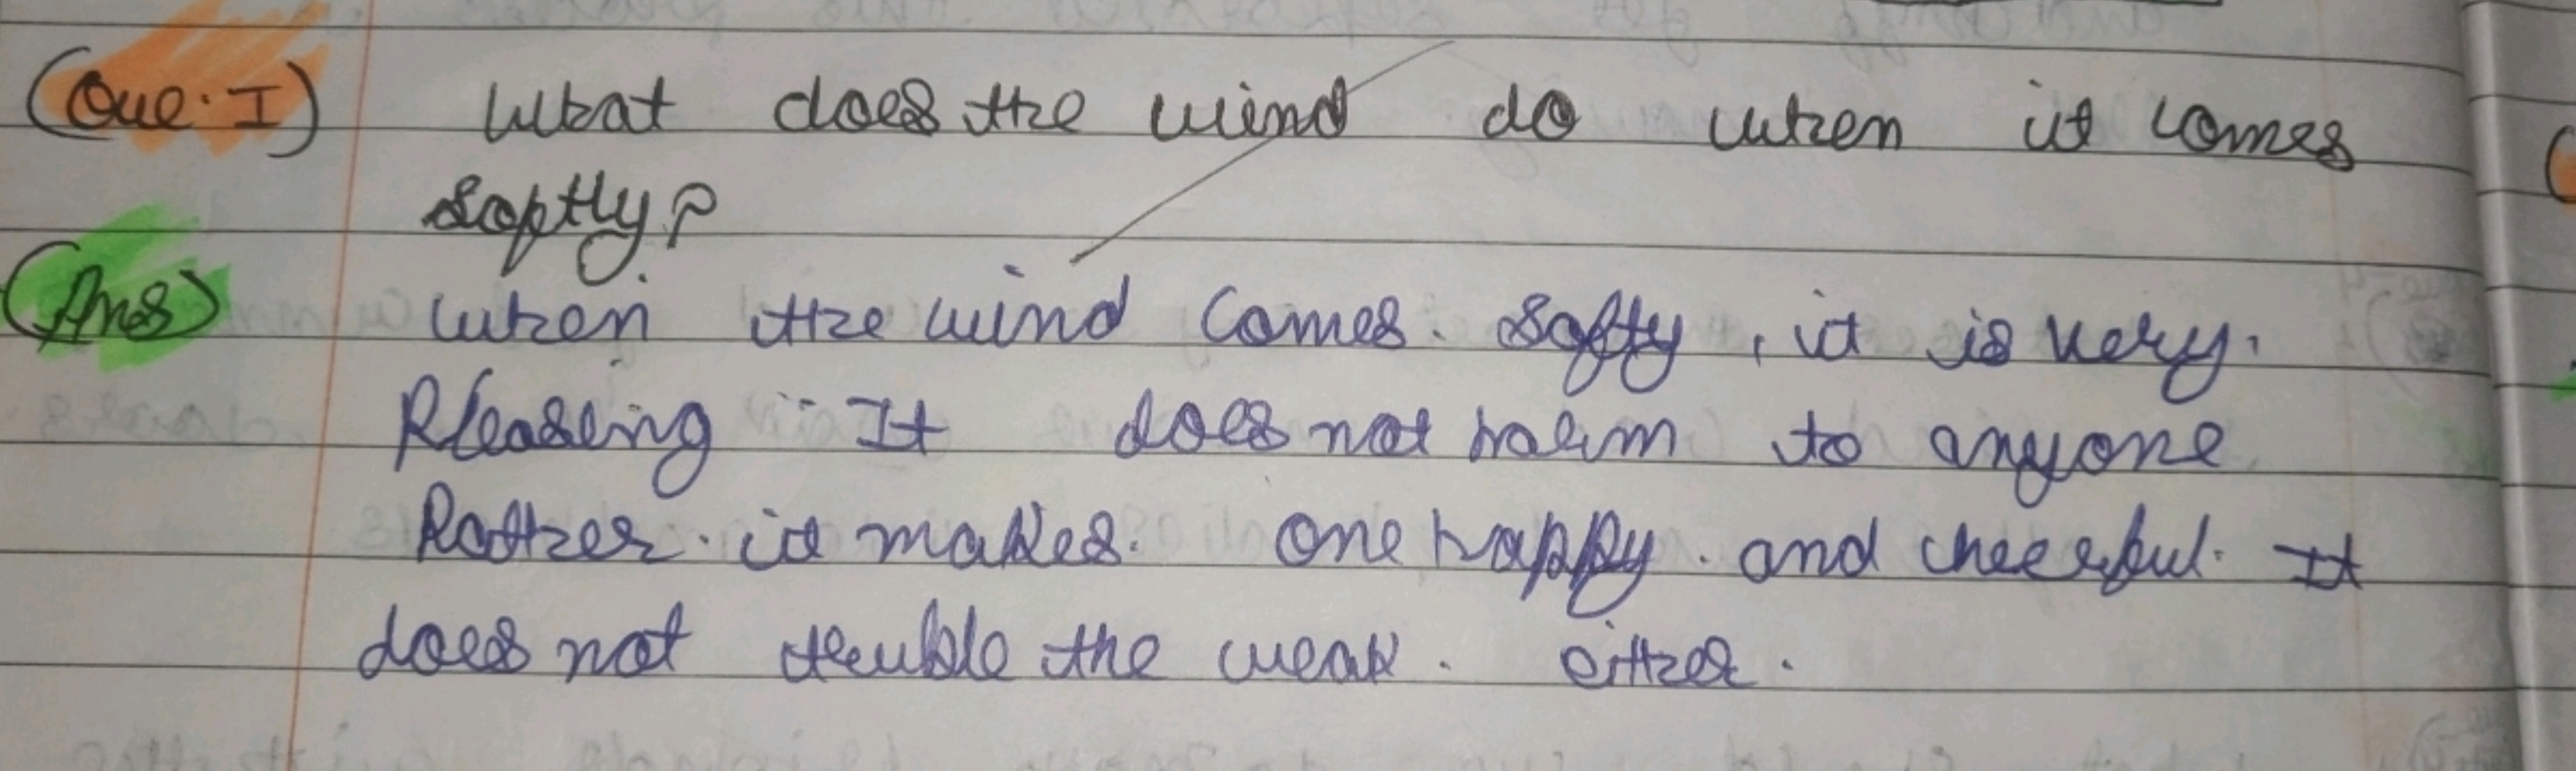 (Que. I) What does the wind do when it comes
softly?
(Ans) When the wind comes. Softy, it is very.
Pleaseing It does not harm to anyone
Rather. it makes. one happy. and cheerful. It
does not teuble the weak. either.